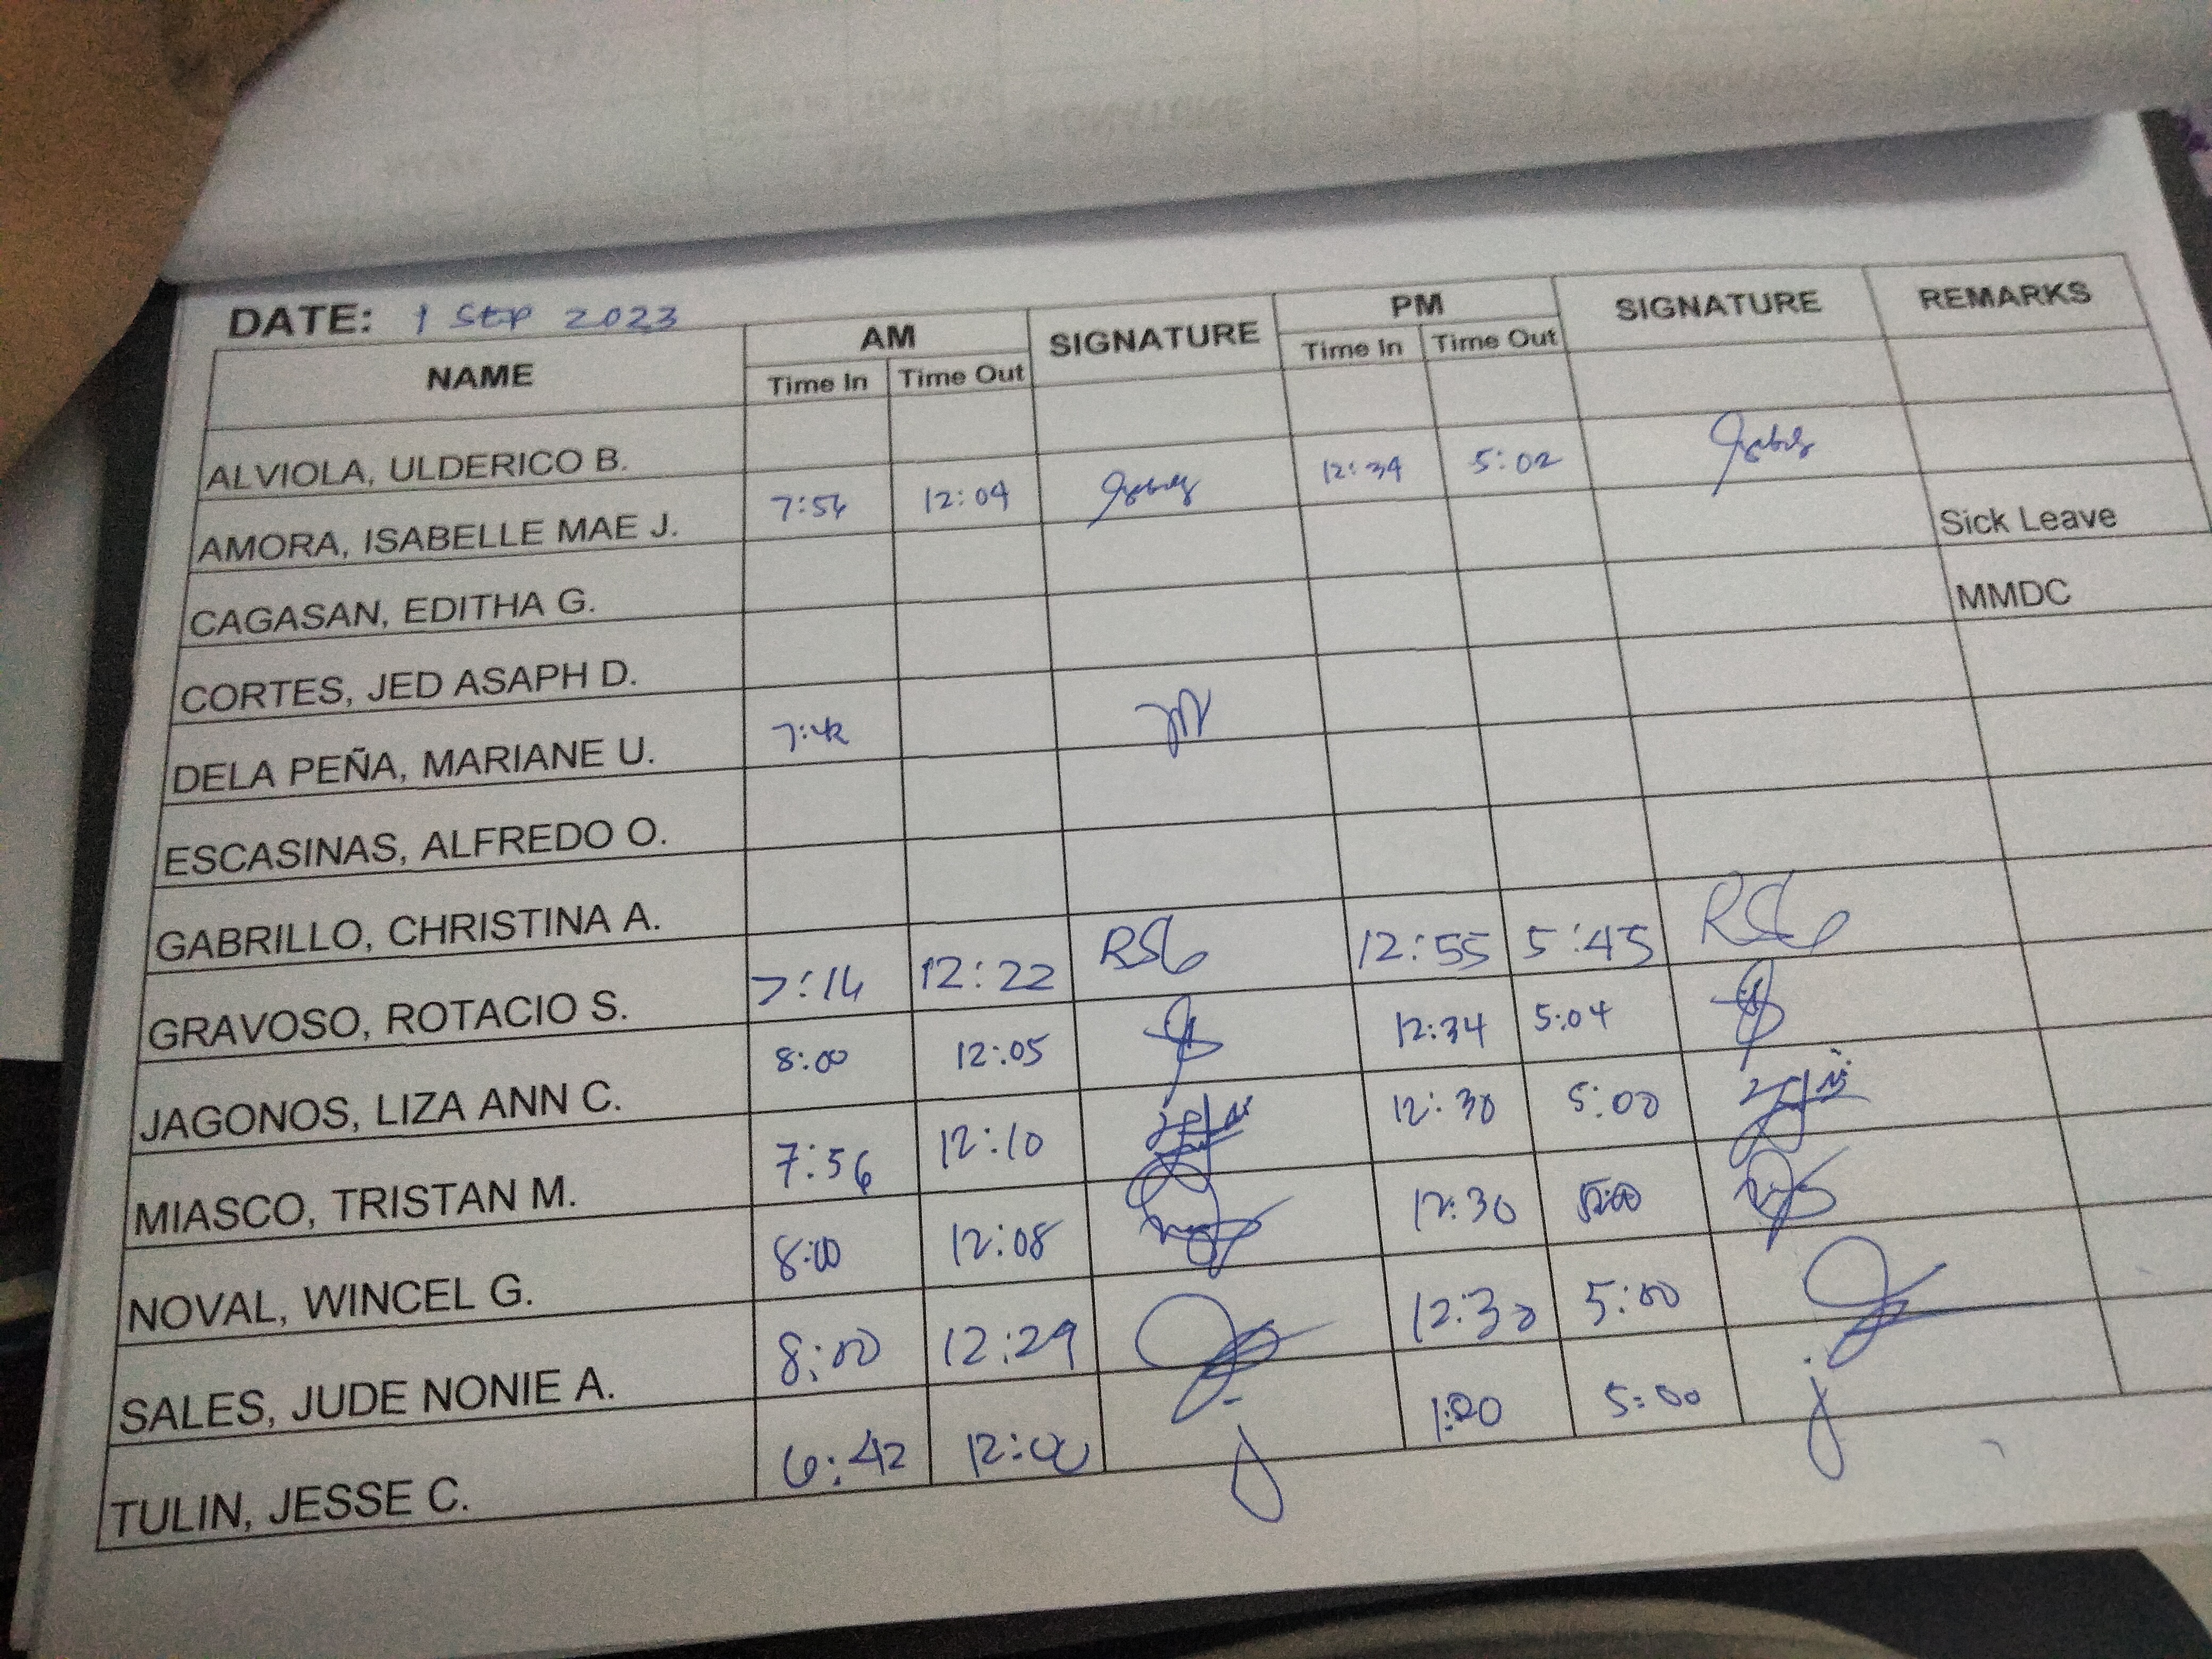 DATE: 1 SEP 2023
NAME AM SIGNATURE PM SIGNATURE REMARKS
Time In Time Out Time In Time Out
ALVIOLA, ULDERICO B.
AMORA, ISABELLE MAE J. 12:04 12:34 5:02
CAGASAN, EDITHA G. Sick Leave
CORTES, JED ASAPH D. MMDC
DELA PEÑA, MARIANE U. 7:42
ESCASINAS, ALFREDO O.
GABRILLO, CHRISTINA A.
GRAVOSO, ROTACIO S. 7:14 12:22 RSG 12:55 5:45 RSG
JAGONOS, LIZA ANN C. 8:00 12:05 12:34 5:04
MIASCO, TRISTAN M. 7:56 12:10 12:30 5:00
NOVAL, WINCEL G. 8:00 12:08 12:30 5:00
SALES, JUDE NONIE A. 8:00 12:29 12:30 5:00
TULIN, JESSE C. 6:42 12:00 j 1:00 5:00 j